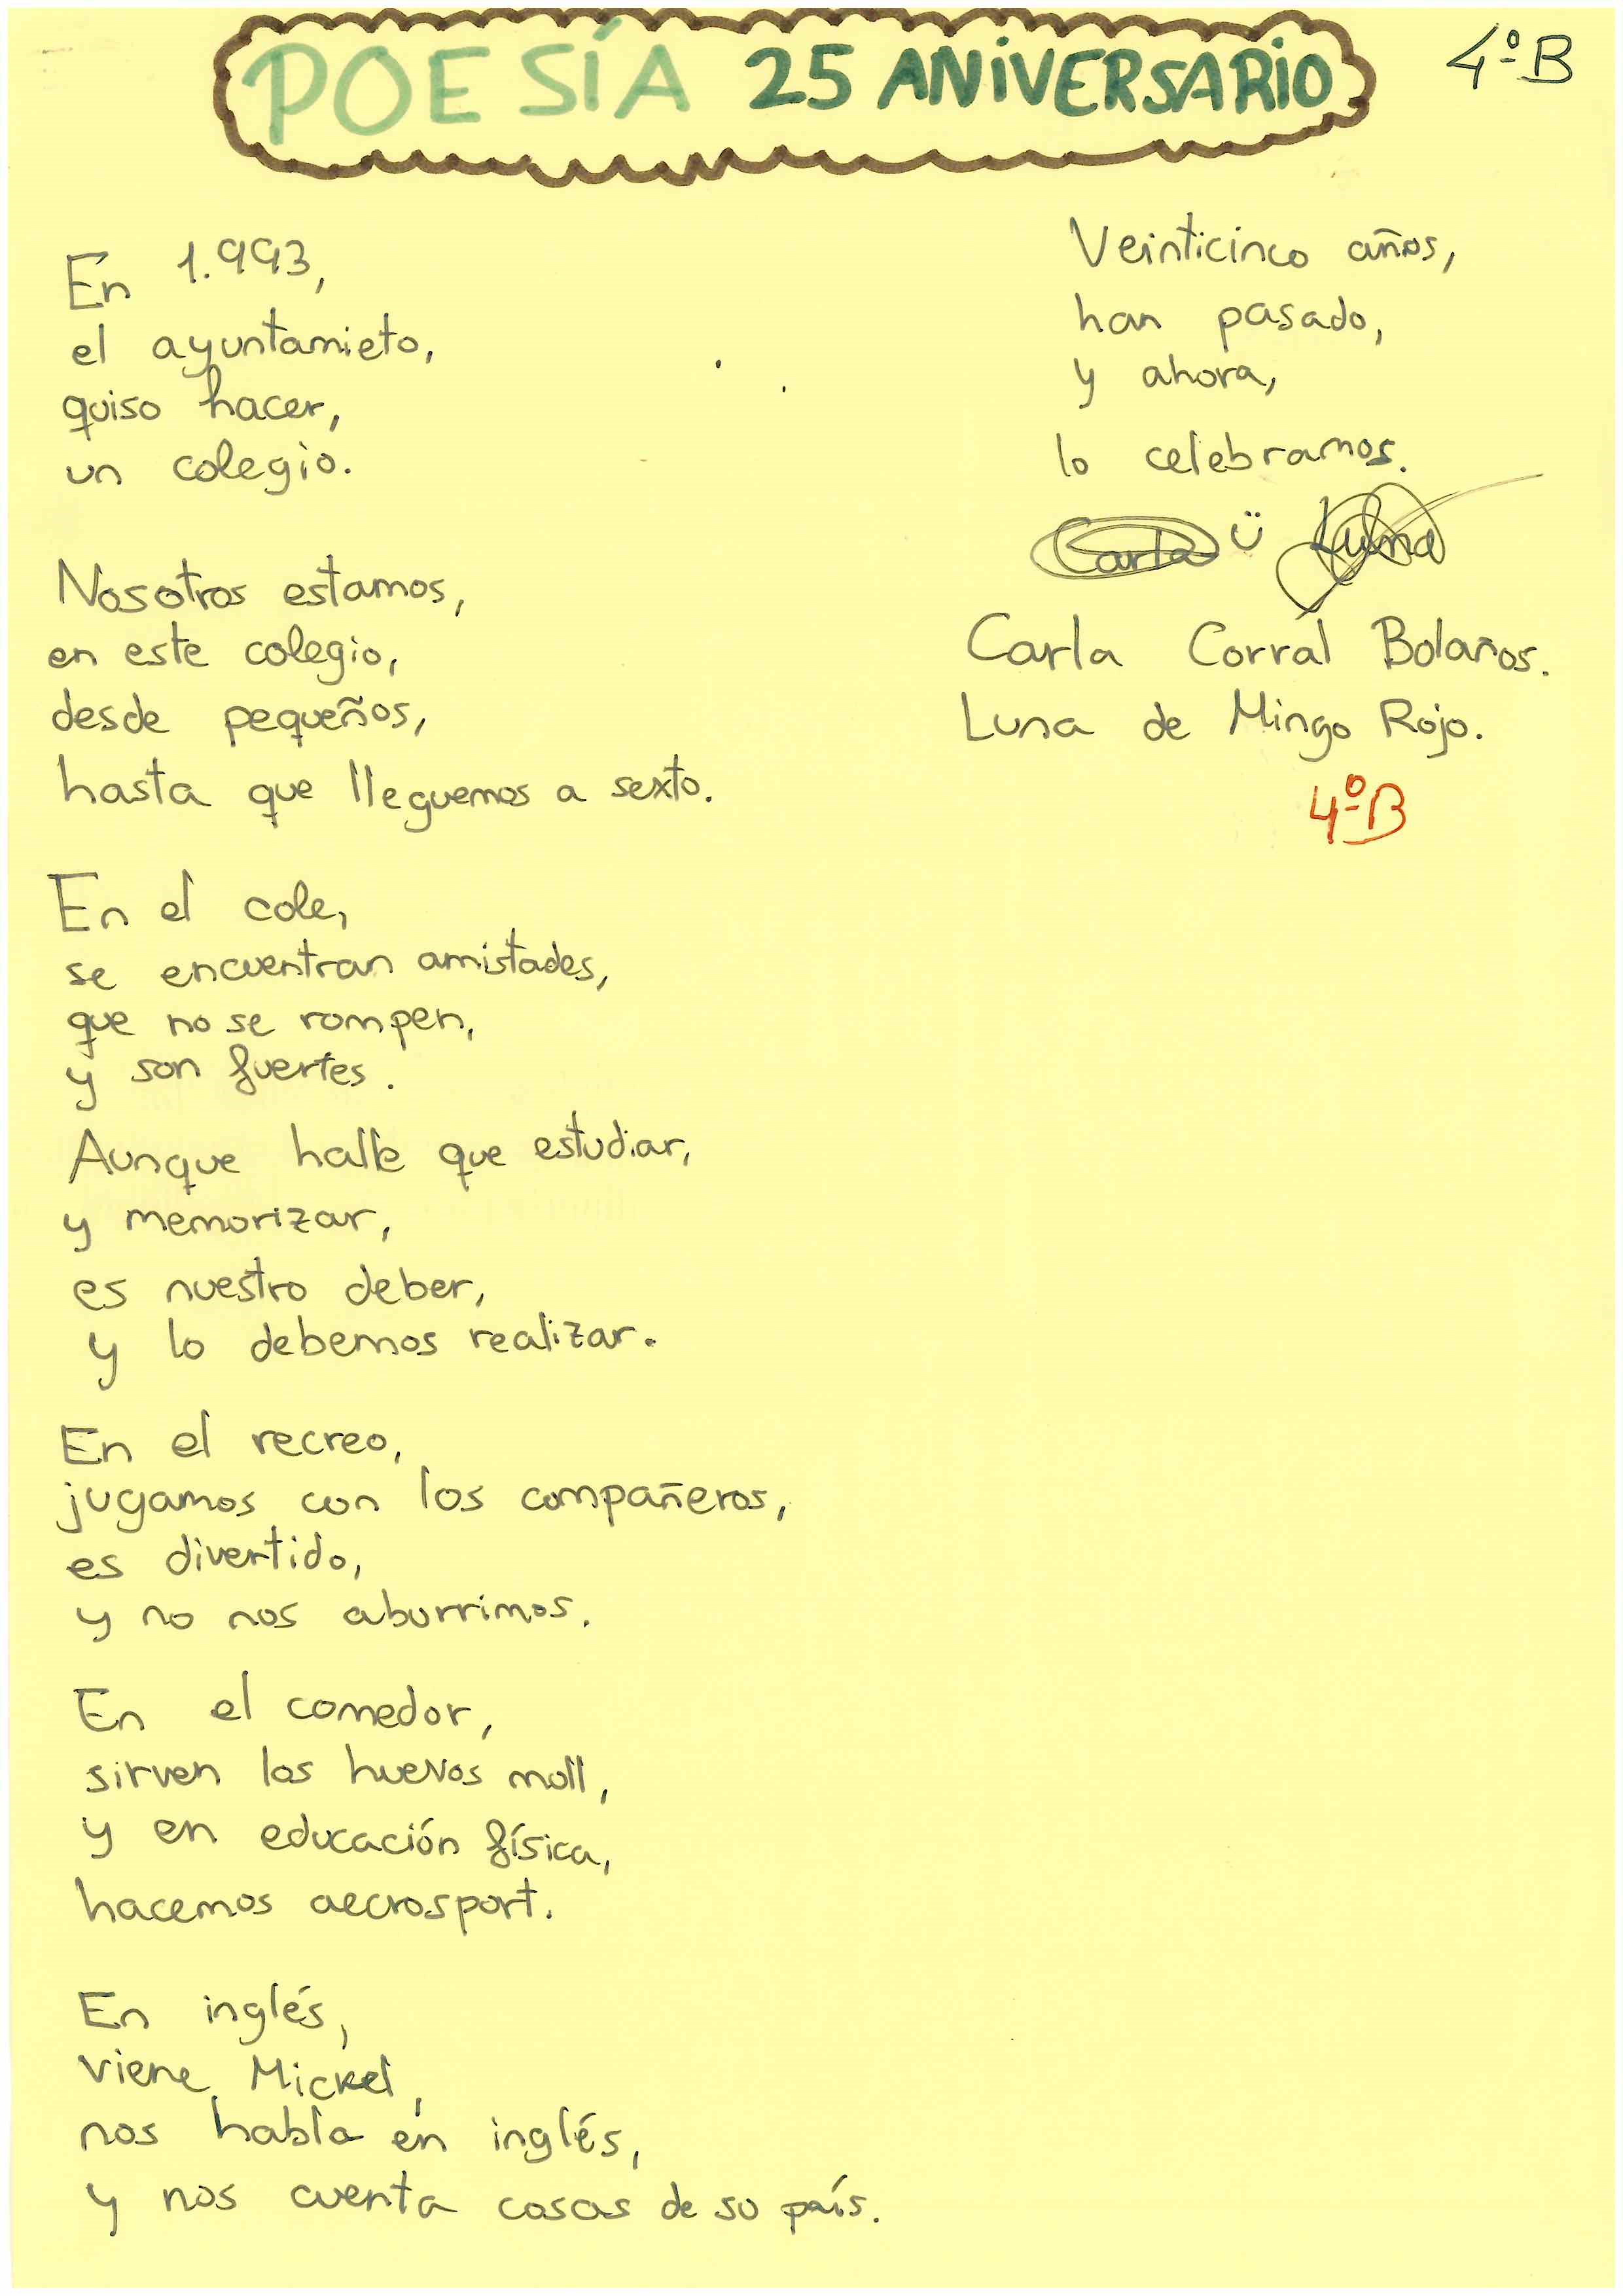 POESÍA 25 ANIVERSARIO
4ºB
En 1.993,
el ayuntamieto,
quiso hacer,
un colegio.
Nosotros estamos,
en este colegio,
desde pequeños,
hasta que lleguemos a sexto.
En el cole,
se encuentran amistades,
que no se rompen,
y son fuertes.
Aunque halle que estudiar,
y memorizar,
es nuestro deber,
y lo debemos realizar.
En el recreo,
jugamos con los compañeros,
es divertido,
y no nos aburrimos.
En el comedor,
sirven los huevos moll,
y en educación física,
hacemos aecrosport.
En inglés,
viene Mickel,
nos habla en inglés,
y nos cuenta cosas de su país.
Veinticinco años,
han pasado,
y ahora,
lo celebramos.
Carla Luna
Carla Corral Bolaños.
Luna de Mingo Rojo.
4ºB